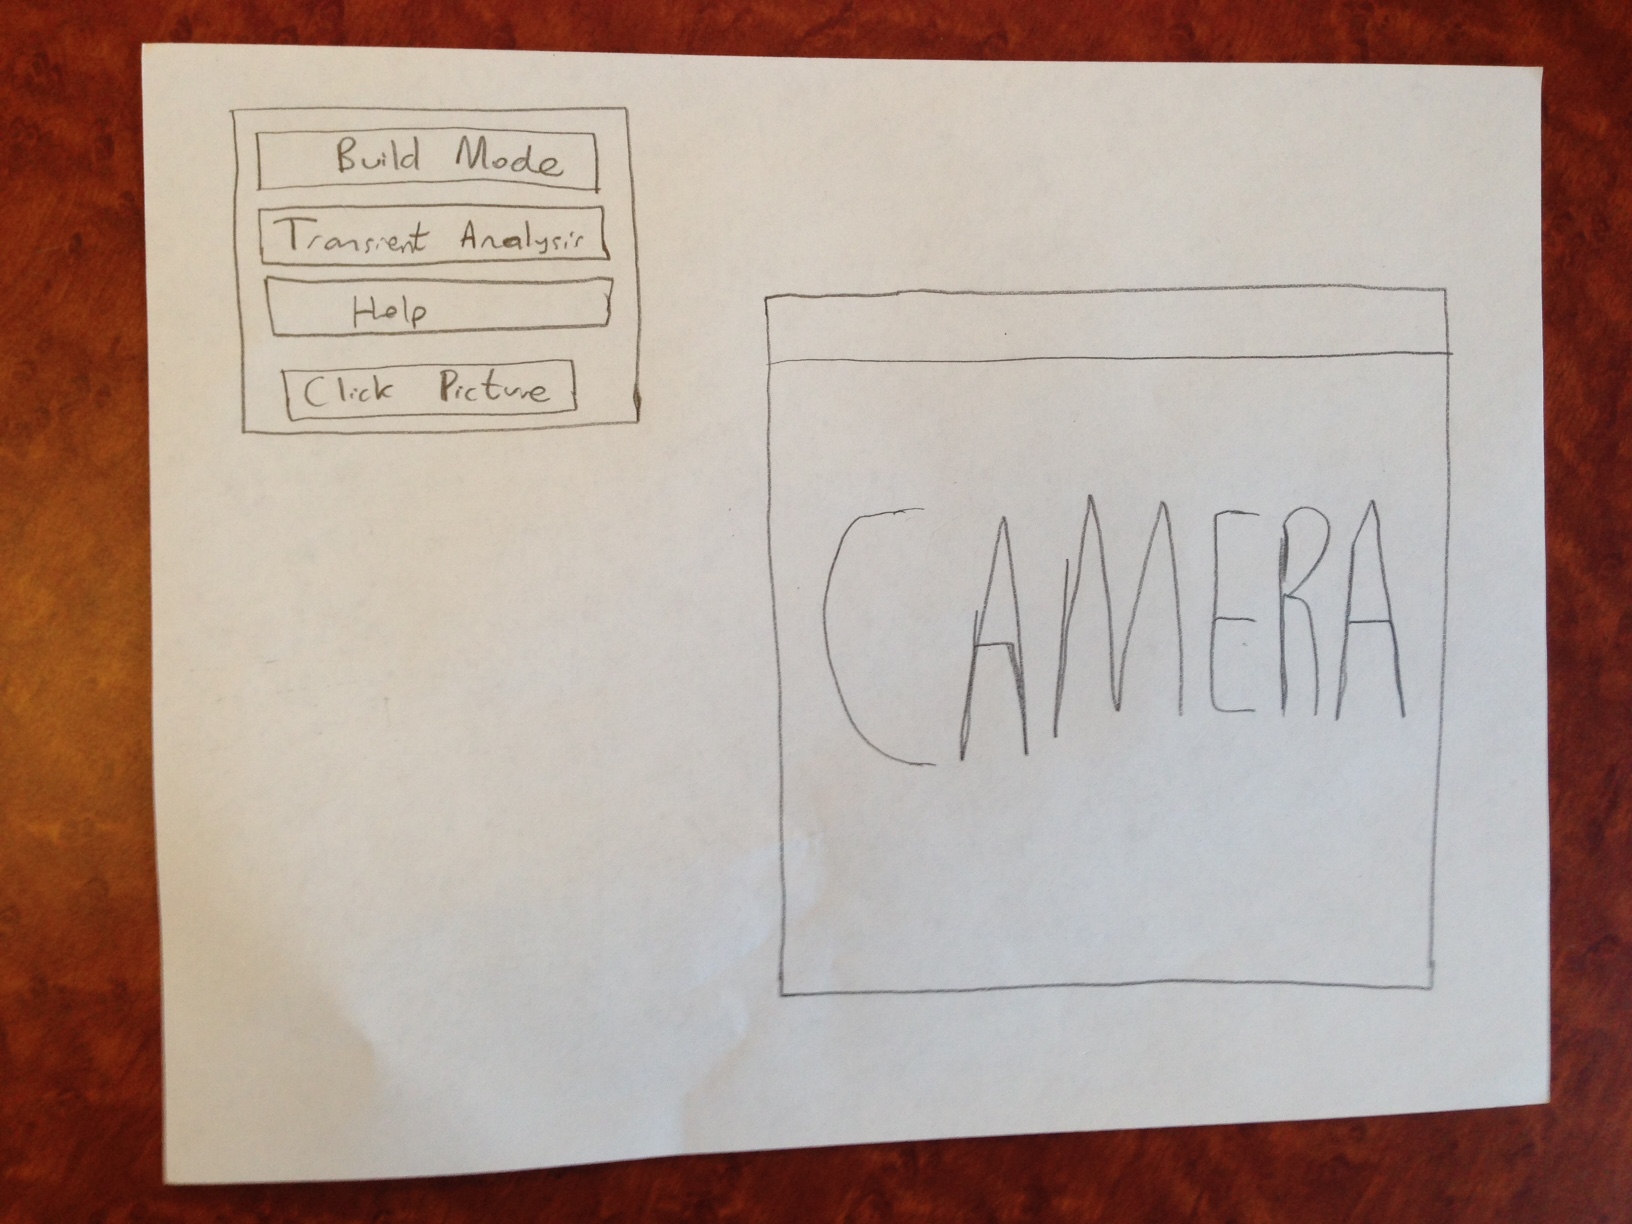 Build Mode
Transient Analysis
Help
Click Picture
CAMERA